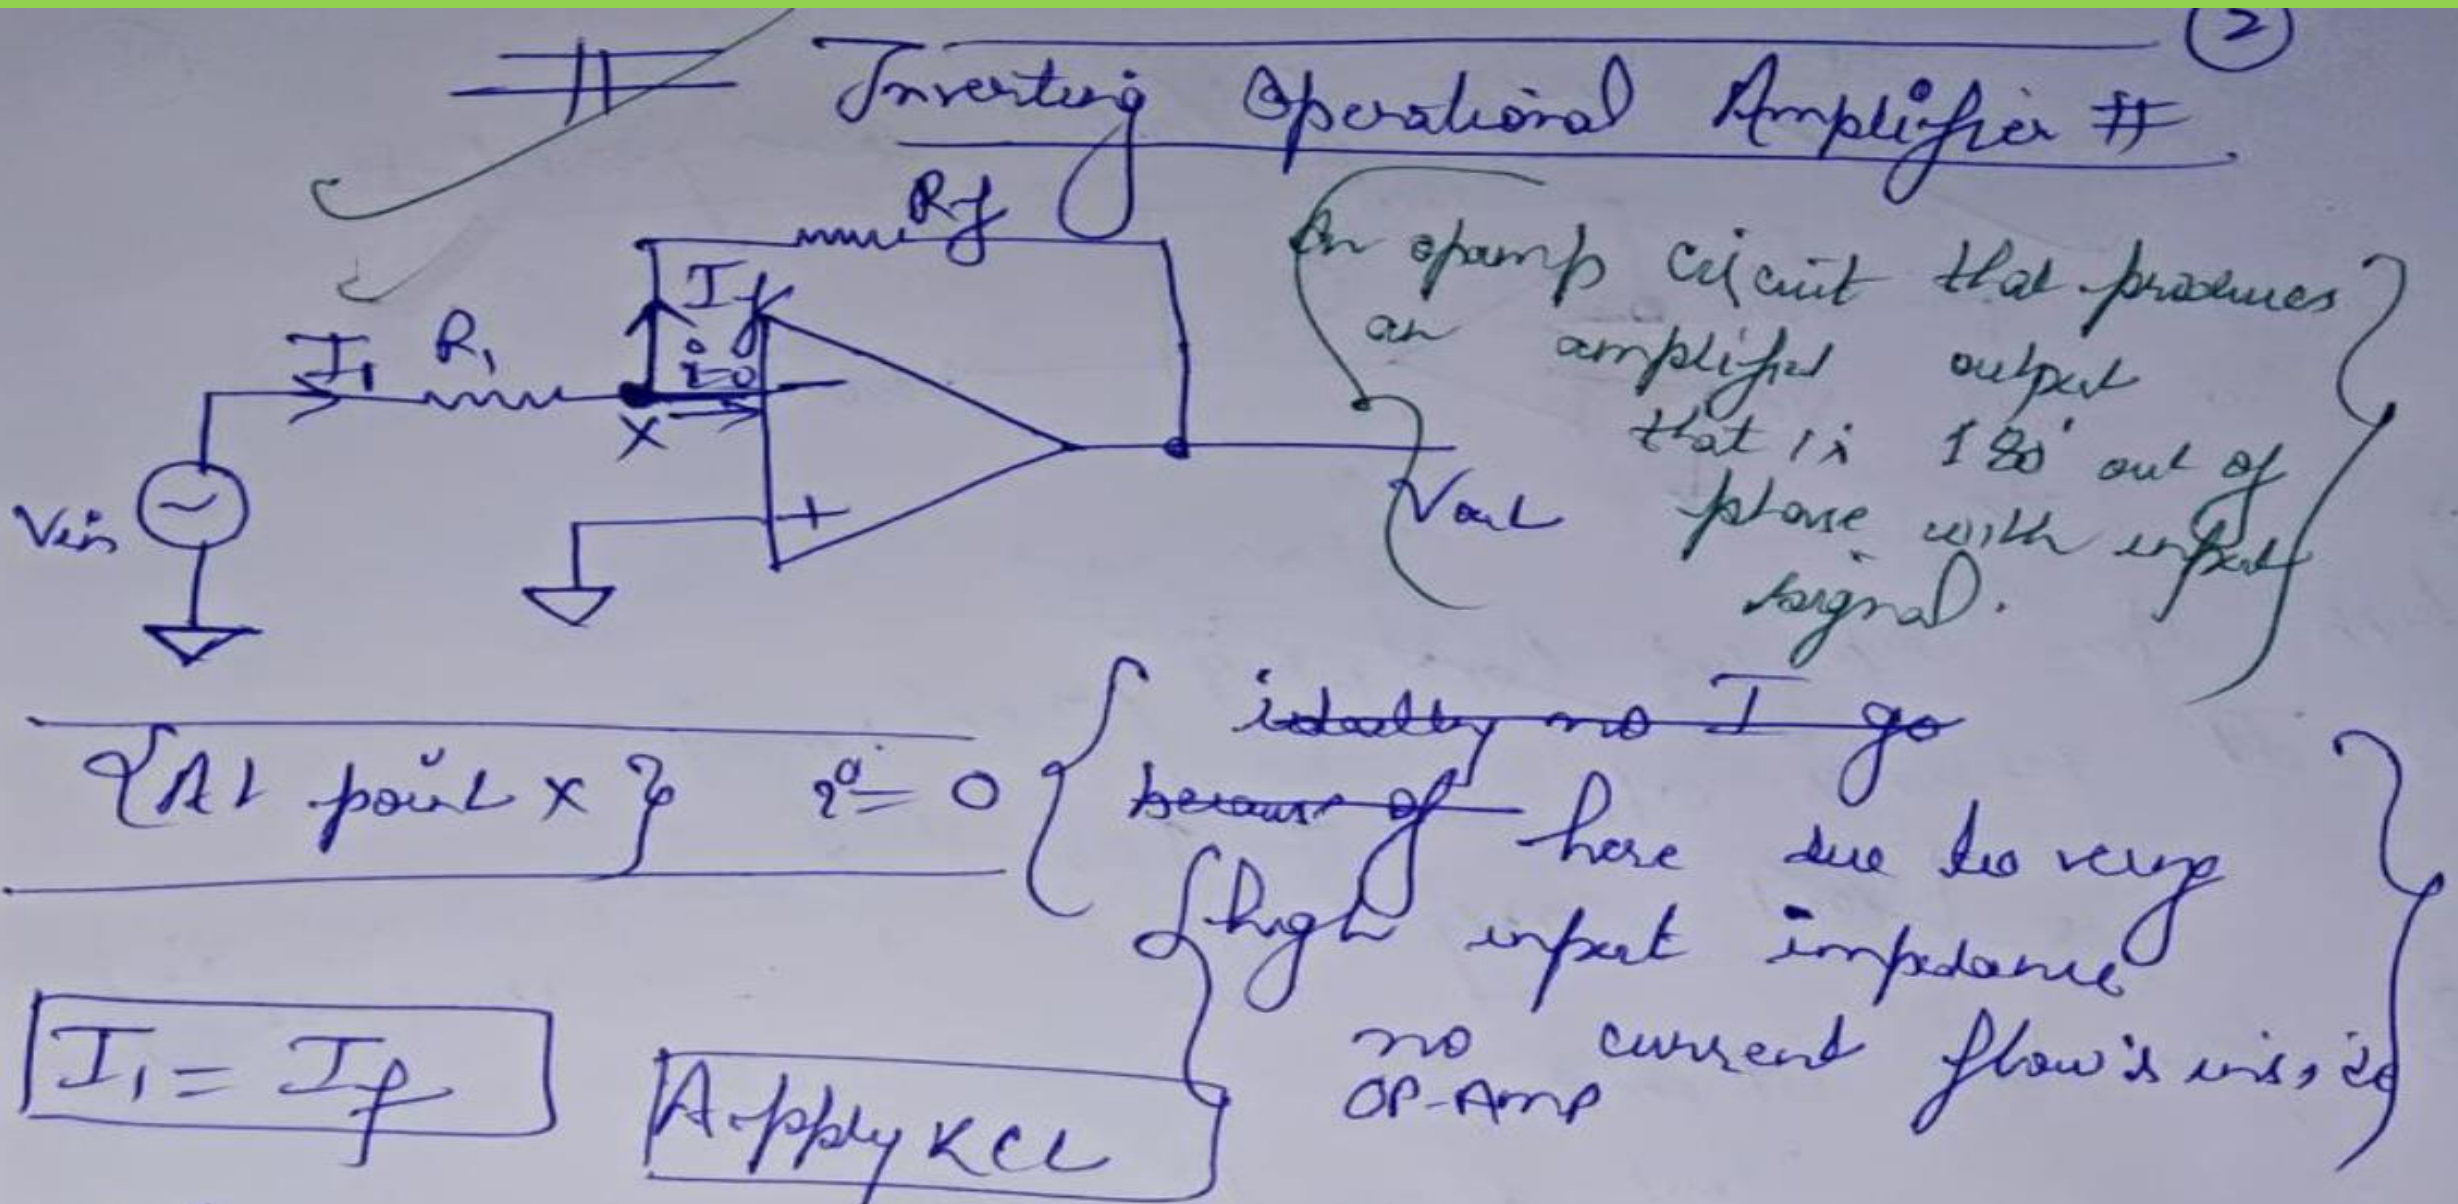 2
# Inverting Operational Amplifier #
Rf
An opamp circuit that produces
an amplified output
that is 180° out of
phase with input
signal.
If
I1
R1
i=0
X
−
+
Vin
Vout
{At point x} i = 0
ideally no I go
because of here due to very
high input impedance
no current flow's inside
OP-Amp
I1 = If
Apply KCL